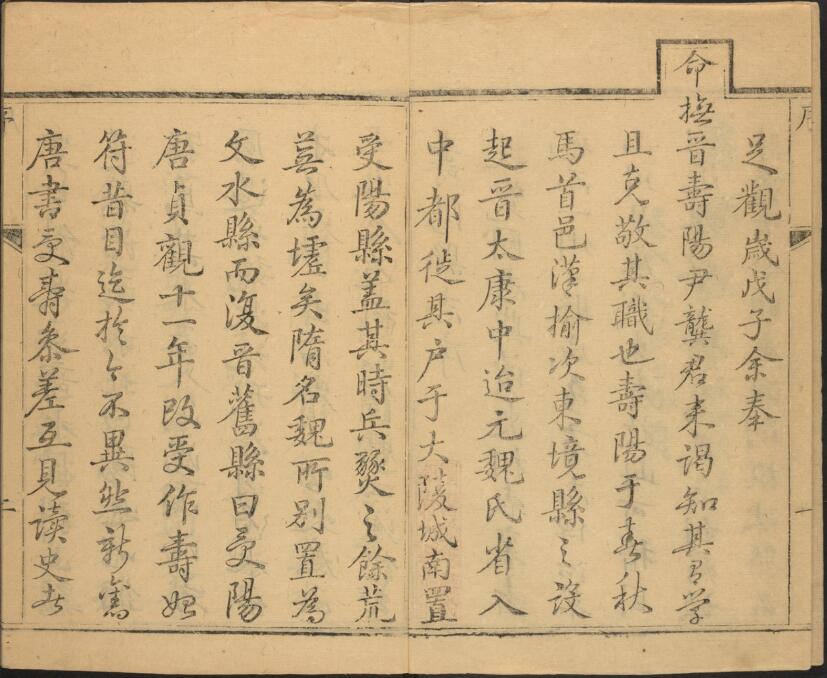 序
足觀歲戊子余奉
命撫晉壽陽尹龔君来謁知其有学
且克敬其職也壽陽于春秋
馬首邑漢榆次東境縣之設
起晉太康中迨元魏氏省入
中都徙其户于大陵城南置
一
受陽縣蓋其時兵燹之餘荒
蕪為墟矣隋名魏所别置為
文水縣而復晉舊縣曰受陽
唐貞觀十一年改受作壽如
符昔目迄於今不異然新舊
唐書受壽叅差互見读史者
序
二